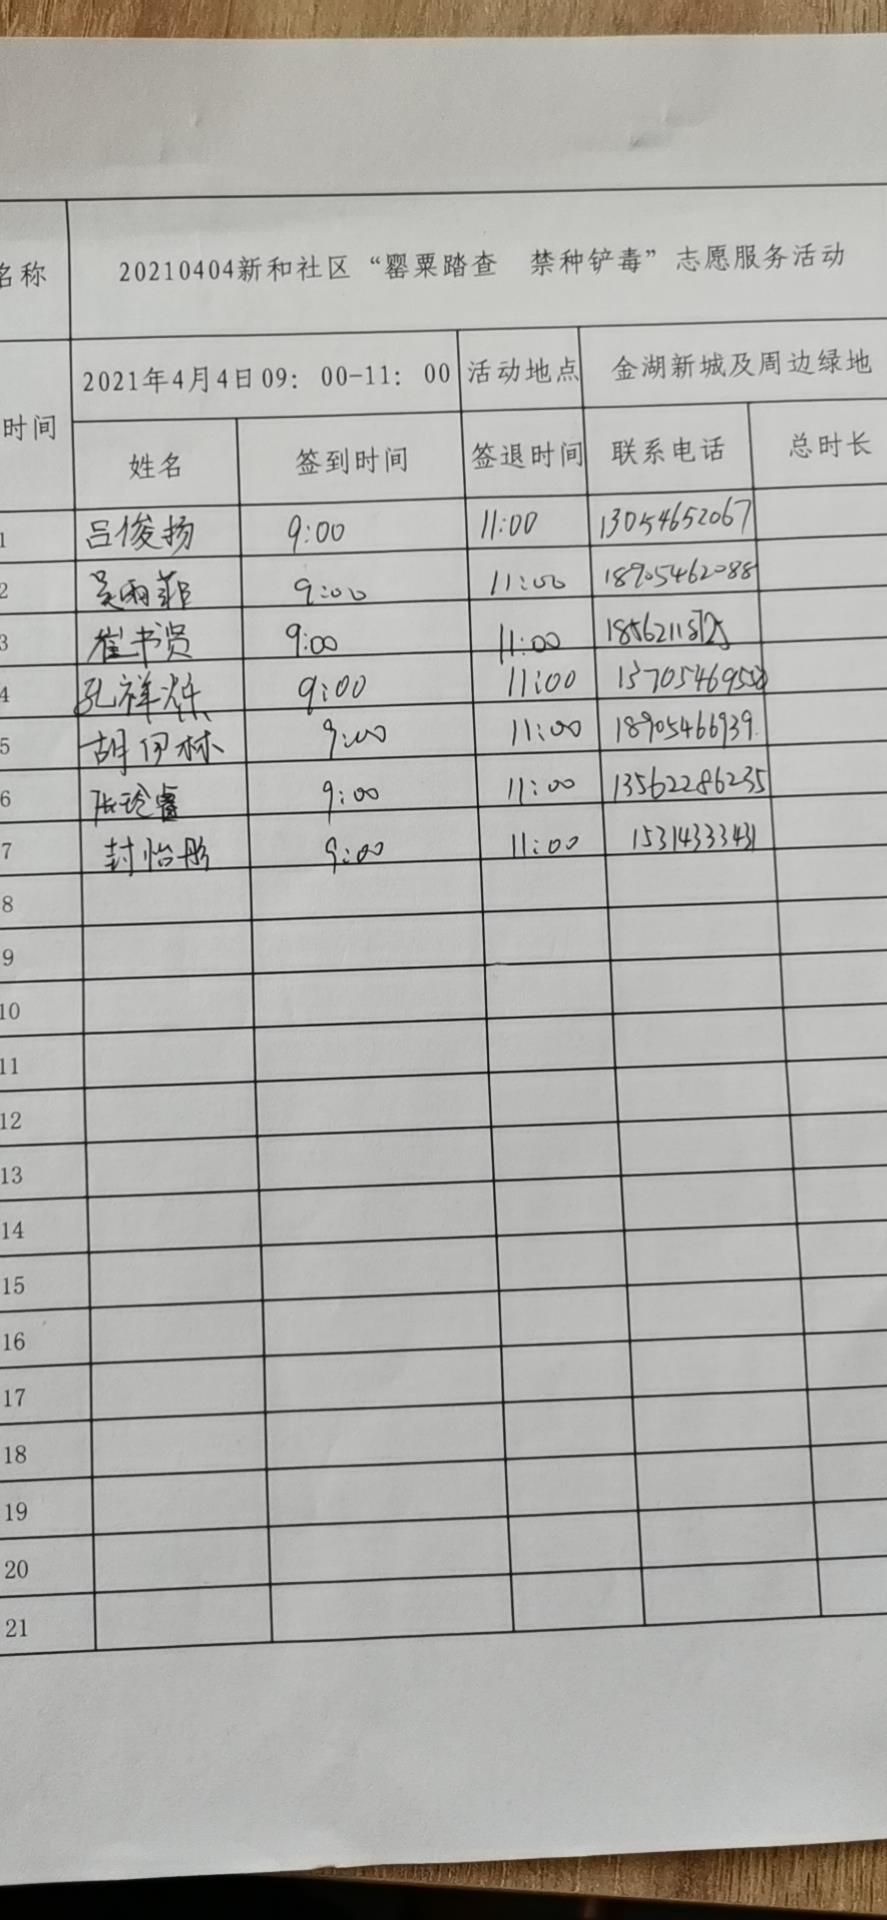 名称 20210404新和社区“罂粟踏查 禁种铲毒”志愿服务活动
时间 2021年4月4日09：00-11：00 活动地点 金湖新城及周边绿地
姓名 签到时间 签退时间 联系电话 总时长
1 吕俊扬 9:00 11:00 13054652067
2 吴雨菲 9:00 11:00 18905462088
3 崔书贤 9:00 11:00
4 孔祥烁 9:00 11:00
5 胡伊林 9:00 11:00 18905466939
6 张玲睿 9:00 11:00 13562286235
7 封怡彤 9:00 11:00 15314333431
8
9
10
11
12
13
14
15
16
17
18
19
20
21